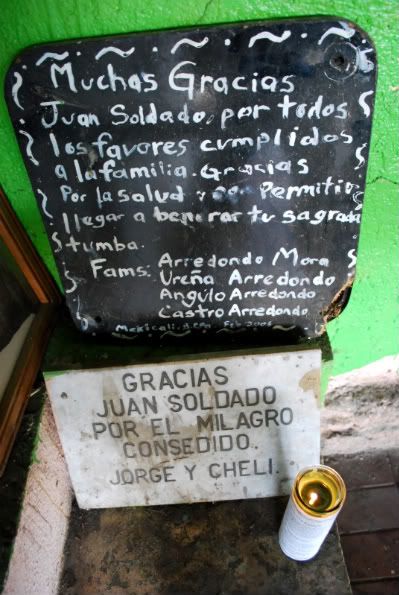 Muchas Gracias
Juan Soldado, por todos
los favores cumplidos
a la familia. Gracias
Por la salud y por Permitir
llegar a benerar tu sagrada
tumba.
Fams: Arredondo Mora
Ureña Arredondo
Angulo Arredondo
Castro Arredondo
Mexicali. Feb.
GRACIAS
JUAN SOLDADO
POR EL MILAGRO
CONSEDIDO.
JORGE Y CHELI.